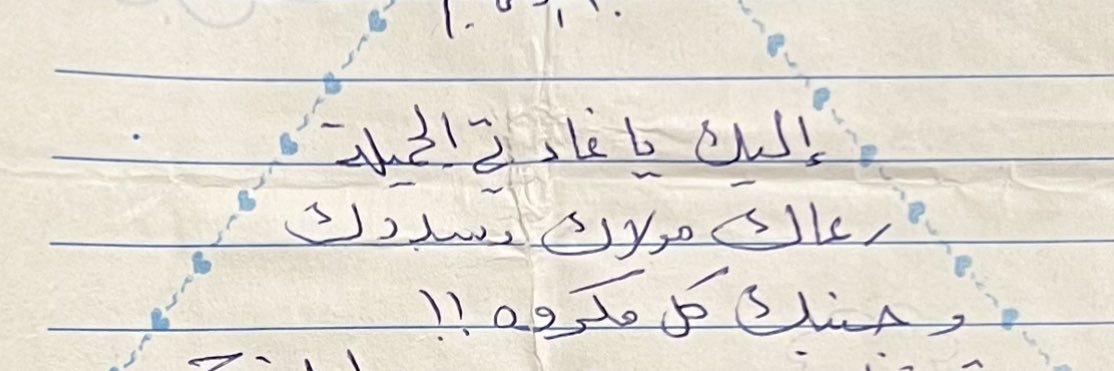 إليك يا غادتي الجميلة
رعاك مولاك وسددك
وجنبك كل مكروه !!